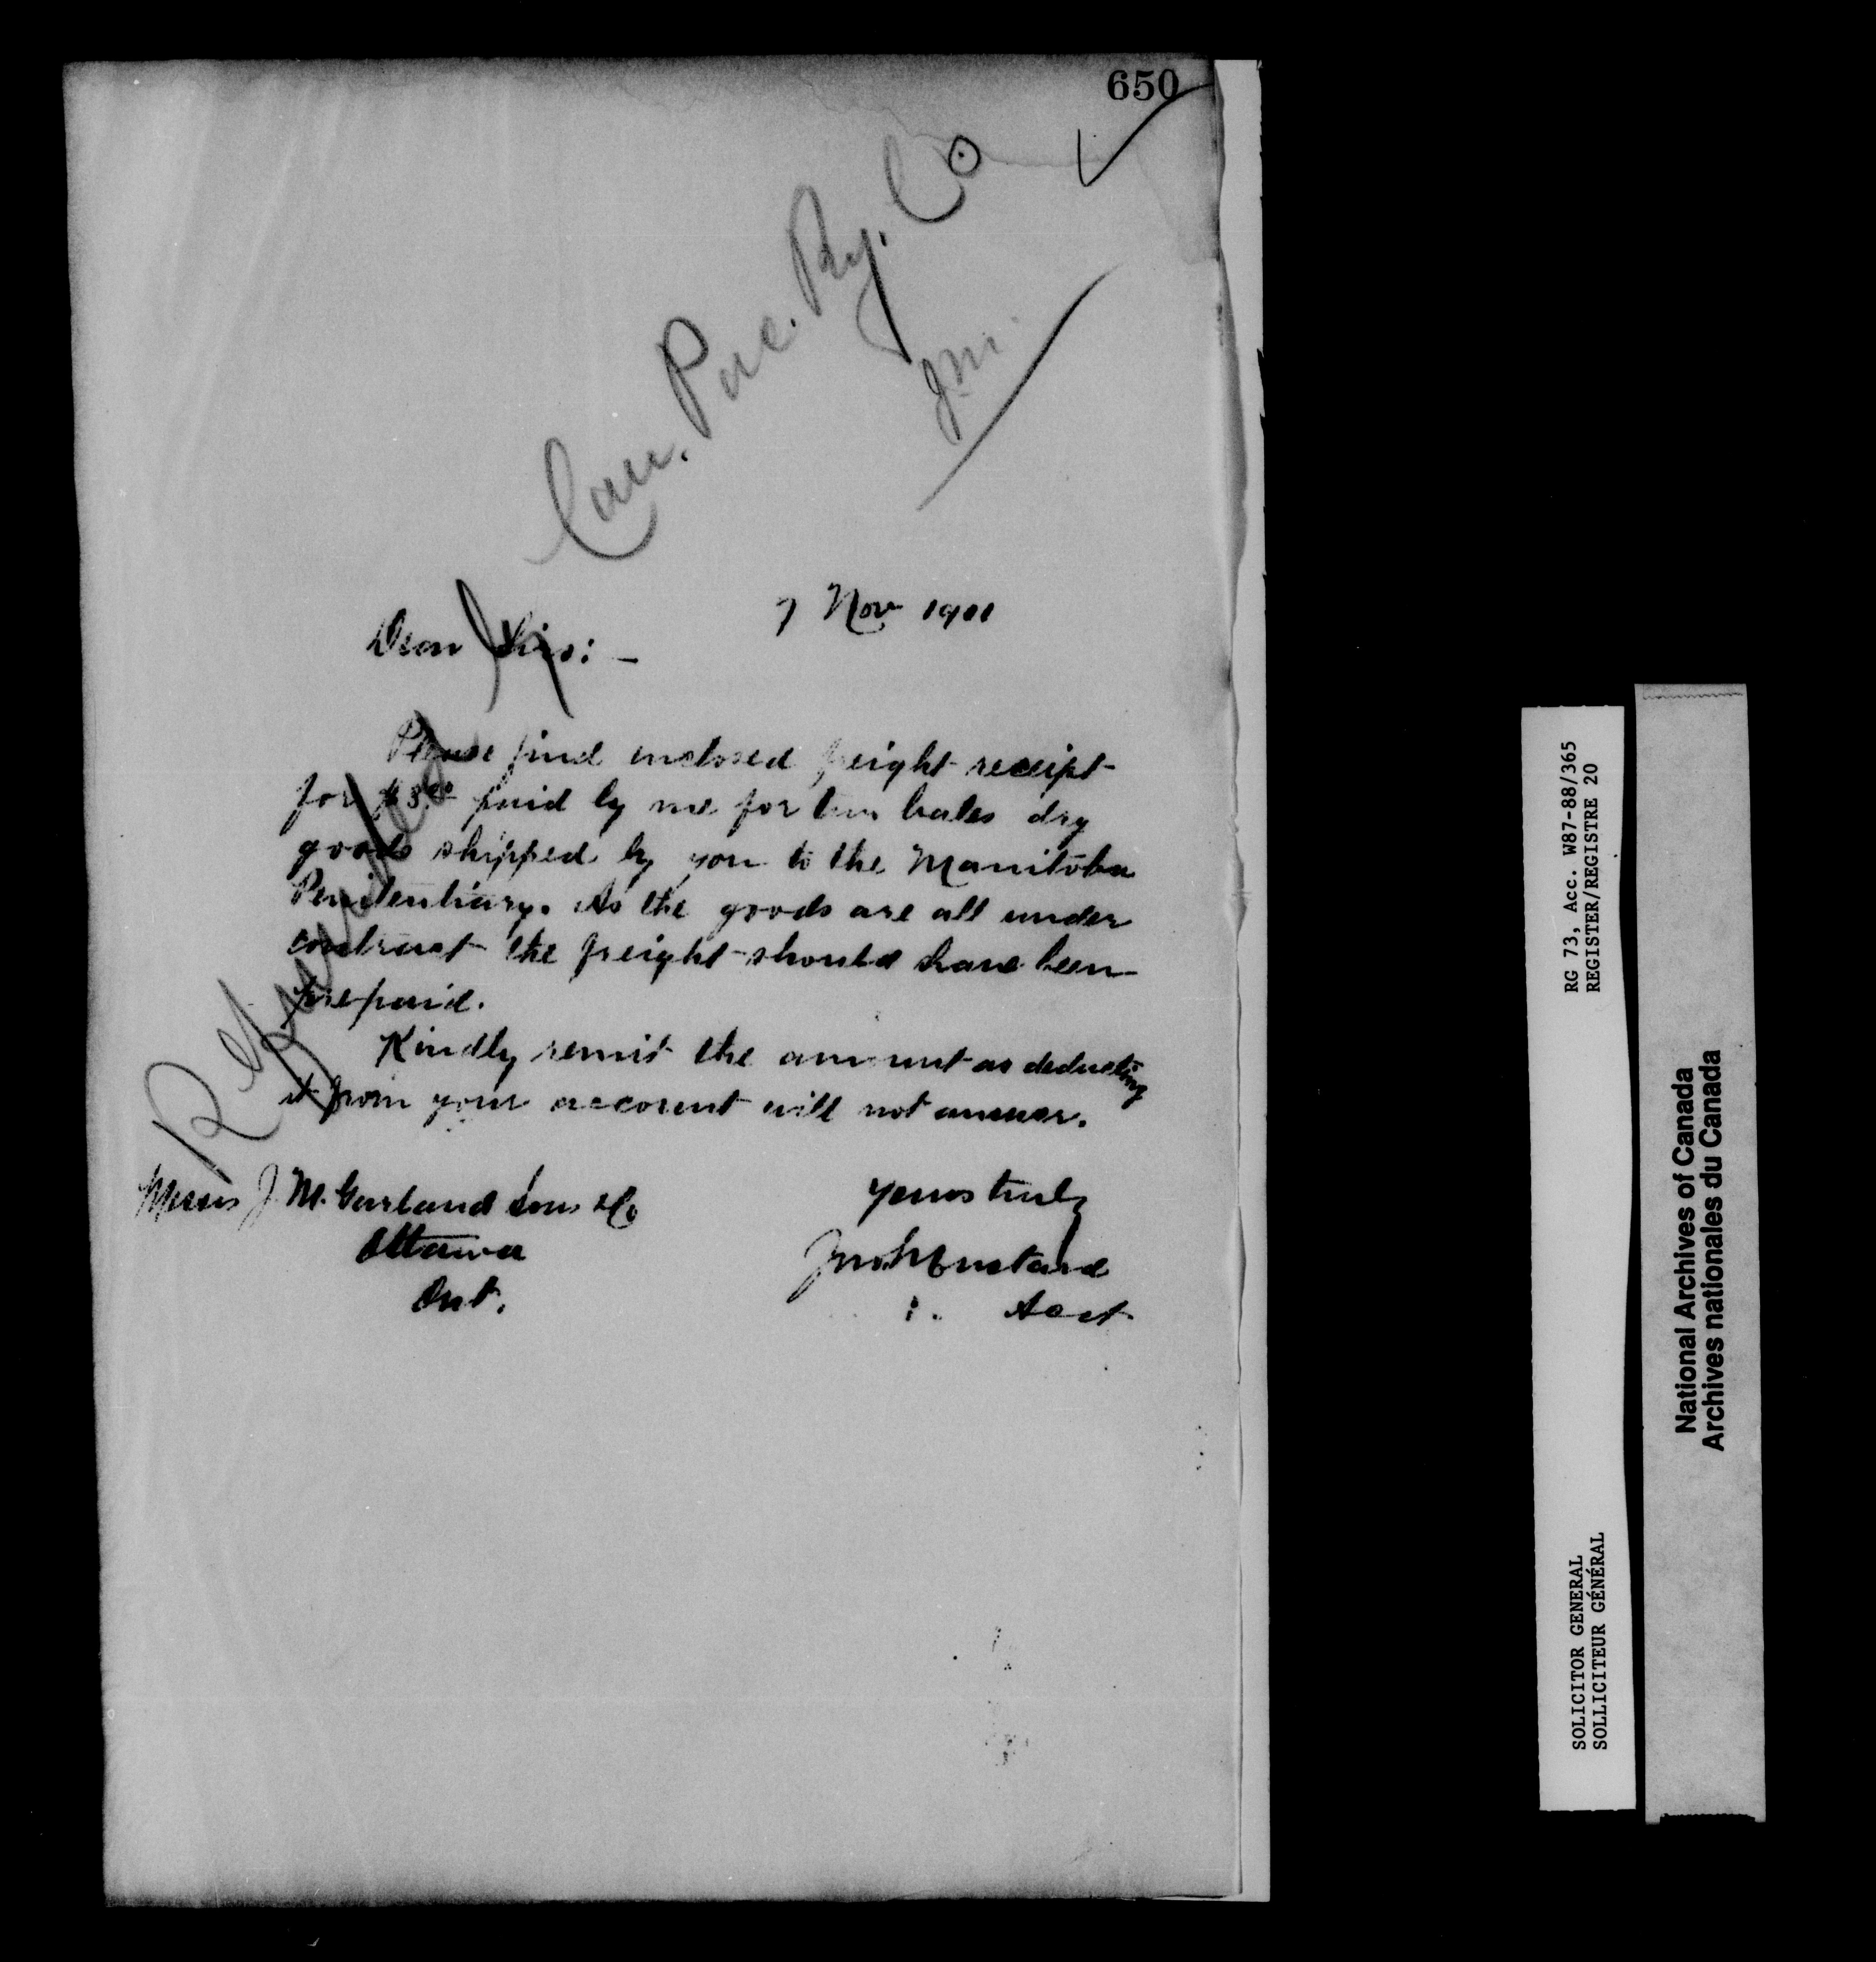 650
Can. Pac. Ry. Co
J.M.
7 Nov 1901
Dear Sirs: —
Please find enclosed freight receipt
for paid by me for two bales dry
goods shipped by you to the Manitoba
Penitentiary. As the goods are all under
contract the freight should have been
prepaid.
Kindly remit the amount as deducting
it from your account will not answer.
Yours truly
Jno. Mustard
Acct
Messrs J. M. Garland Son & Co
Ottawa
Ont.
Refunded
RG 73, Acc. W87-88/365
REGISTER/REGISTRE 20
SOLICITOR GENERAL
SOLLICITEUR GÉNÉRAL
National Archives of Canada
Archives nationales du Canada